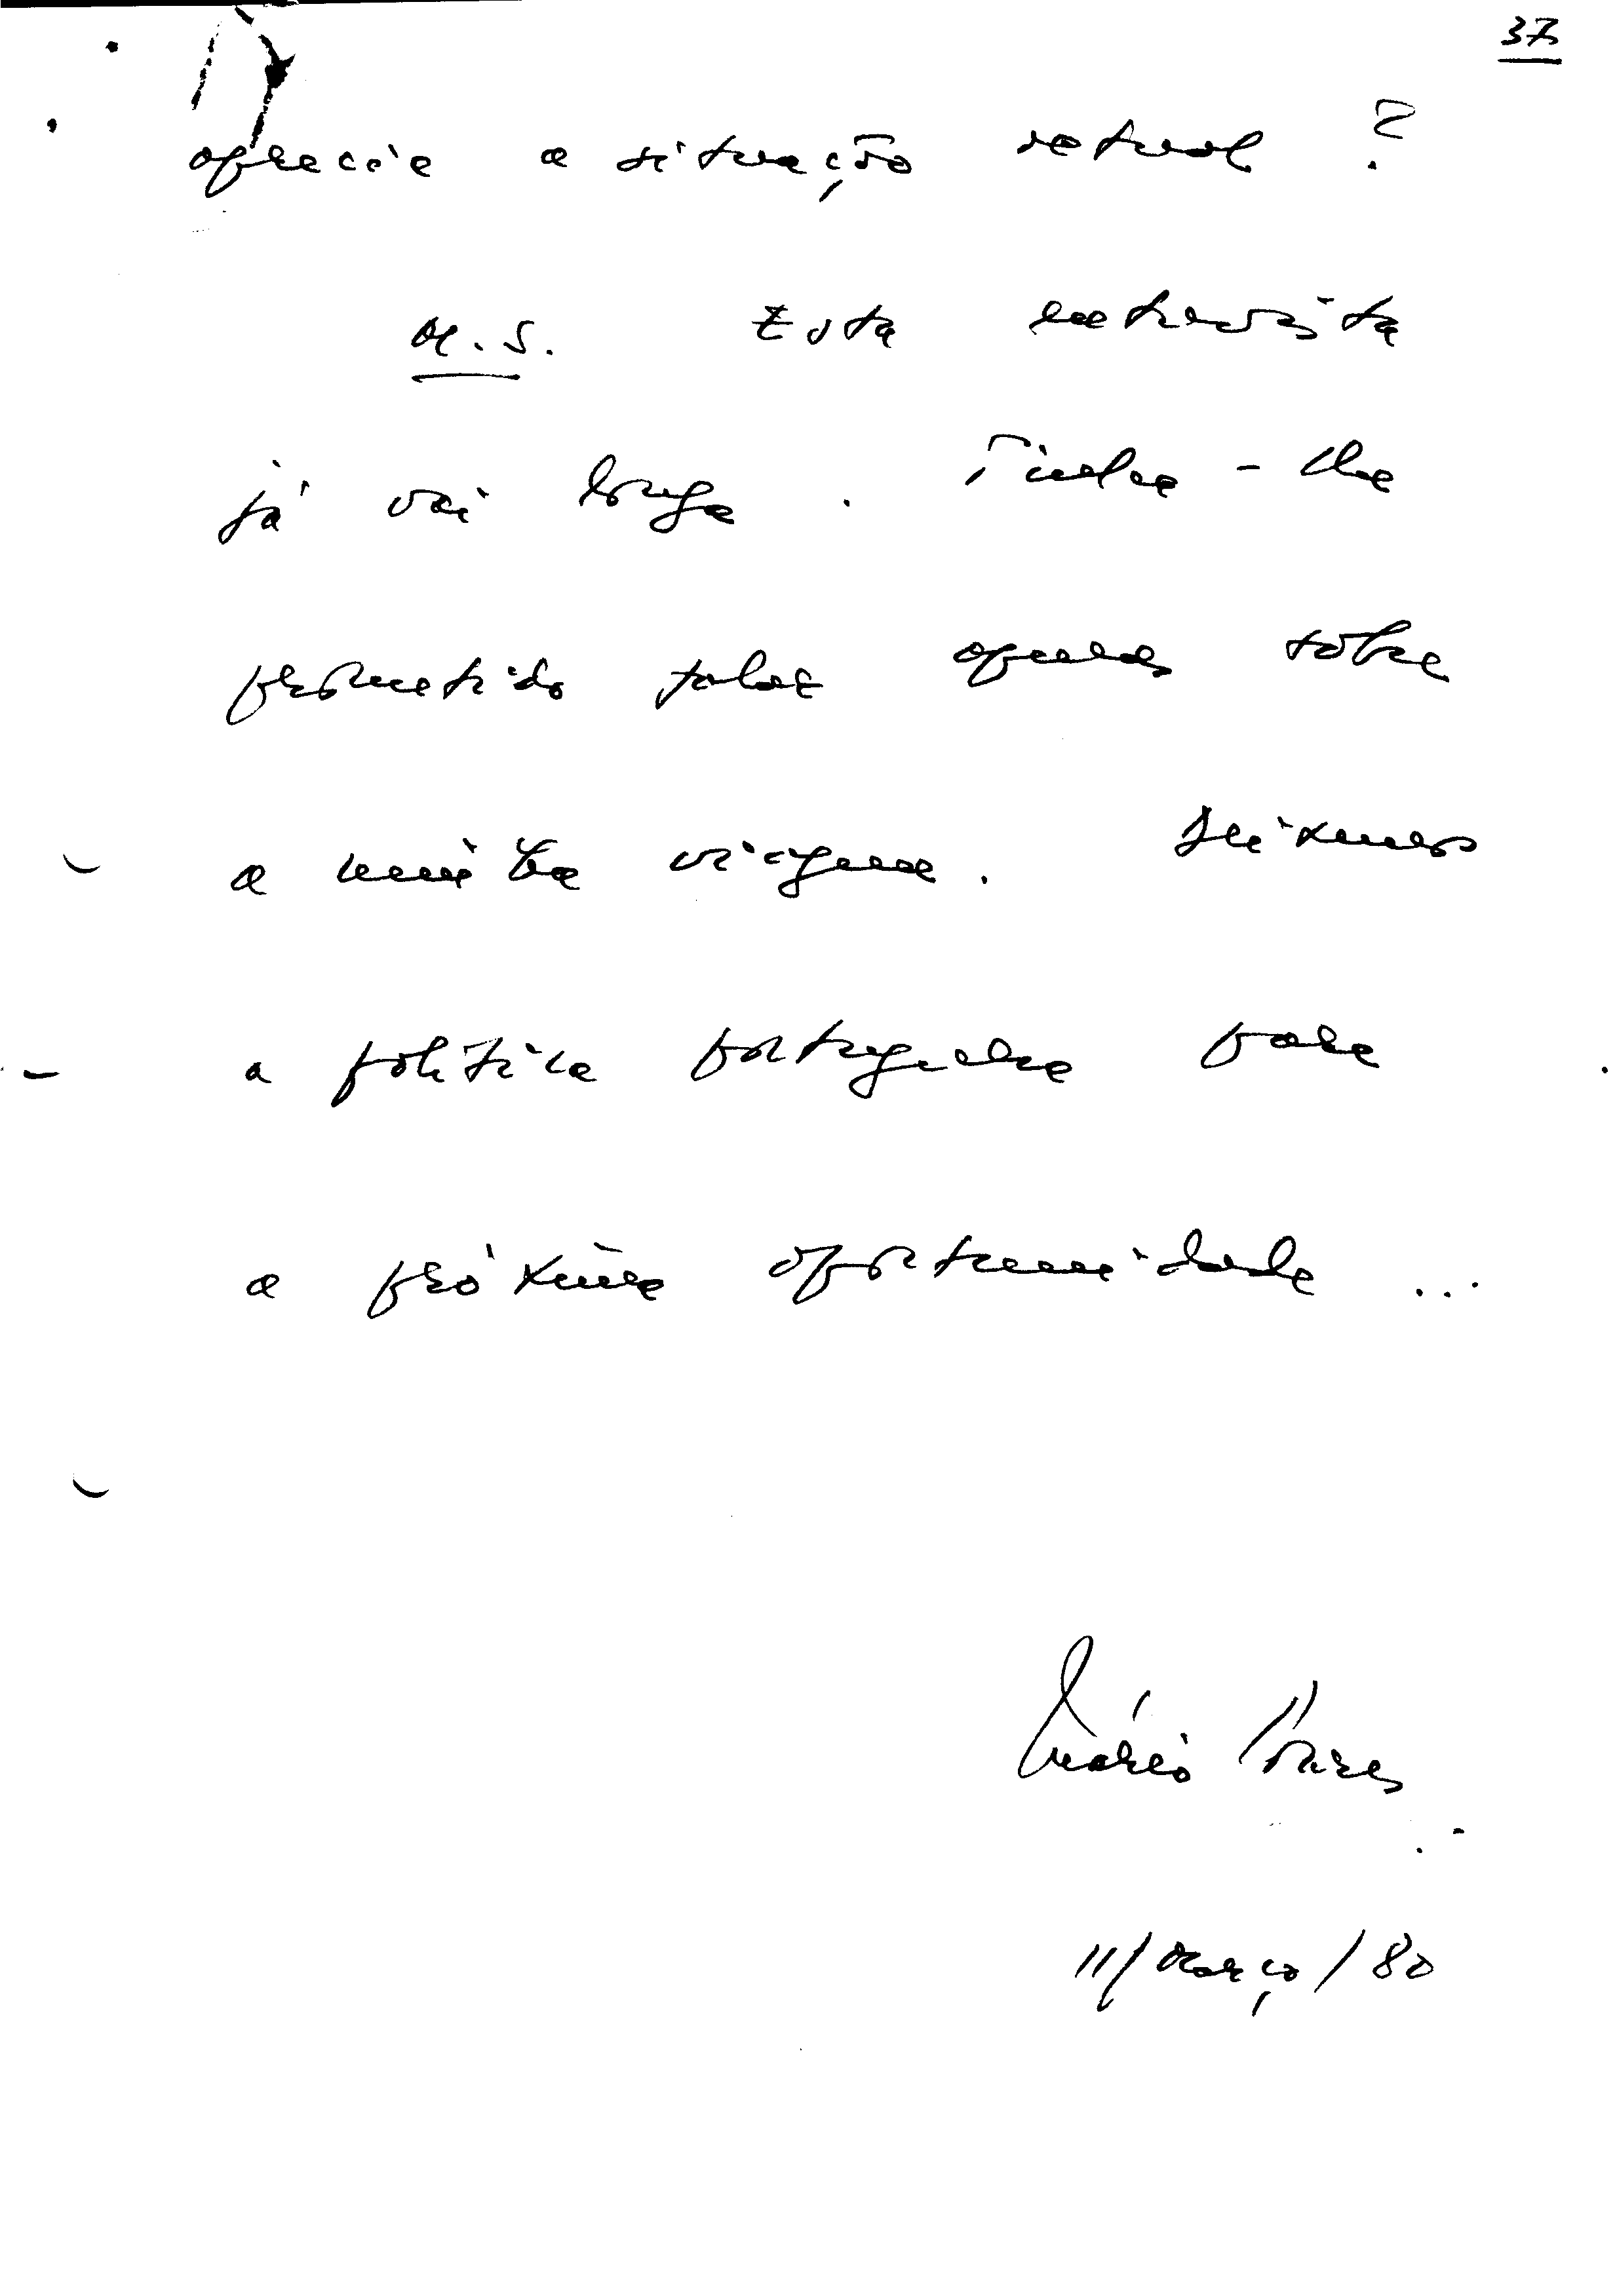 37
aprecia a situação actual ?
M.S. Esta entrevista
já vai longa. Tinha-lhe
prometido falar apenas sobre
a minha viagem. Deixemos
a política portuguesa para
a próxima oportunidade ...
Mário Soares
11/Março/80